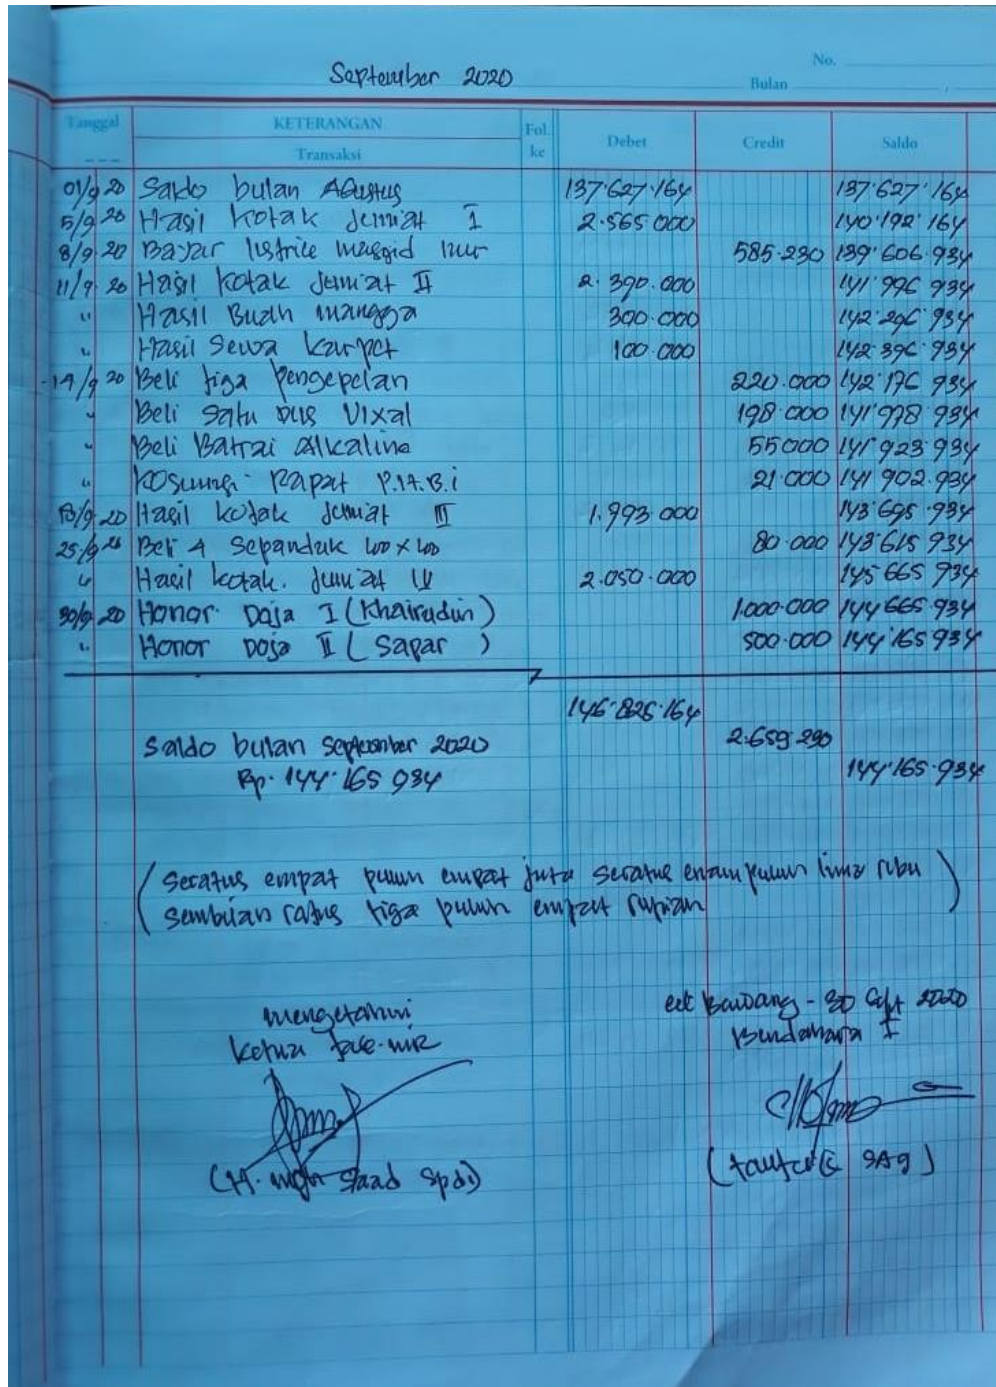 September 2020
No.
Bulan
Tanggal KETERANGAN Fol. ke Debet Credit Saldo
Transaksi
01/9 20 Saldo bulan Agustus 137.627.164 137.627.164
5/9 20 Hasil kotak Jumiat I 2.565.000 140.192.164
8/9.20 Bayar listrice masgid nur 585.230 139.606.934
11/9.20 Hasil kotak Jum'at II 2.390.000 141.996 934
" Hasil Buah mangga 300.000 142.296.934
" Hasil Sewa karpet 100.000 142.396.934
14/9 20 Beli tiga Pengepelan 220.000 142.176 934
" Beli satu Dus Vixal 198.000 141.978.934
" Beli Batrai alkaline 55000 141.923.934
" Rapat P.H.B.i 21.000 141 902.934
18/9.20 Hasil kotak Jumiat III 1.993.000 143.695.934
25/9 20 Beli 4 Sepanduk 400 x 400 80.000 143.615 934
" Hasil kotak. Jum'at IV 2.050.000 145 665 934
30/9 20 Honor Doja I (Khairudin) 1.000.000 144 665 934
" Honor Doja II ( Sapar ) 500.000 144.165 934
146.825.164
Saldo bulan September 2020 2.659.230
Rp. 144.165 934 144.165.934
( Seratus empat puluh empat juta seratus enam puluh lima ribu
Sembilan ratus tiga puluh empat rupiah )
mengetahui
Bawang - 30 Sept 2020
Ketua Bendahara I
(H. moh Saad Spdi) ( SAg )